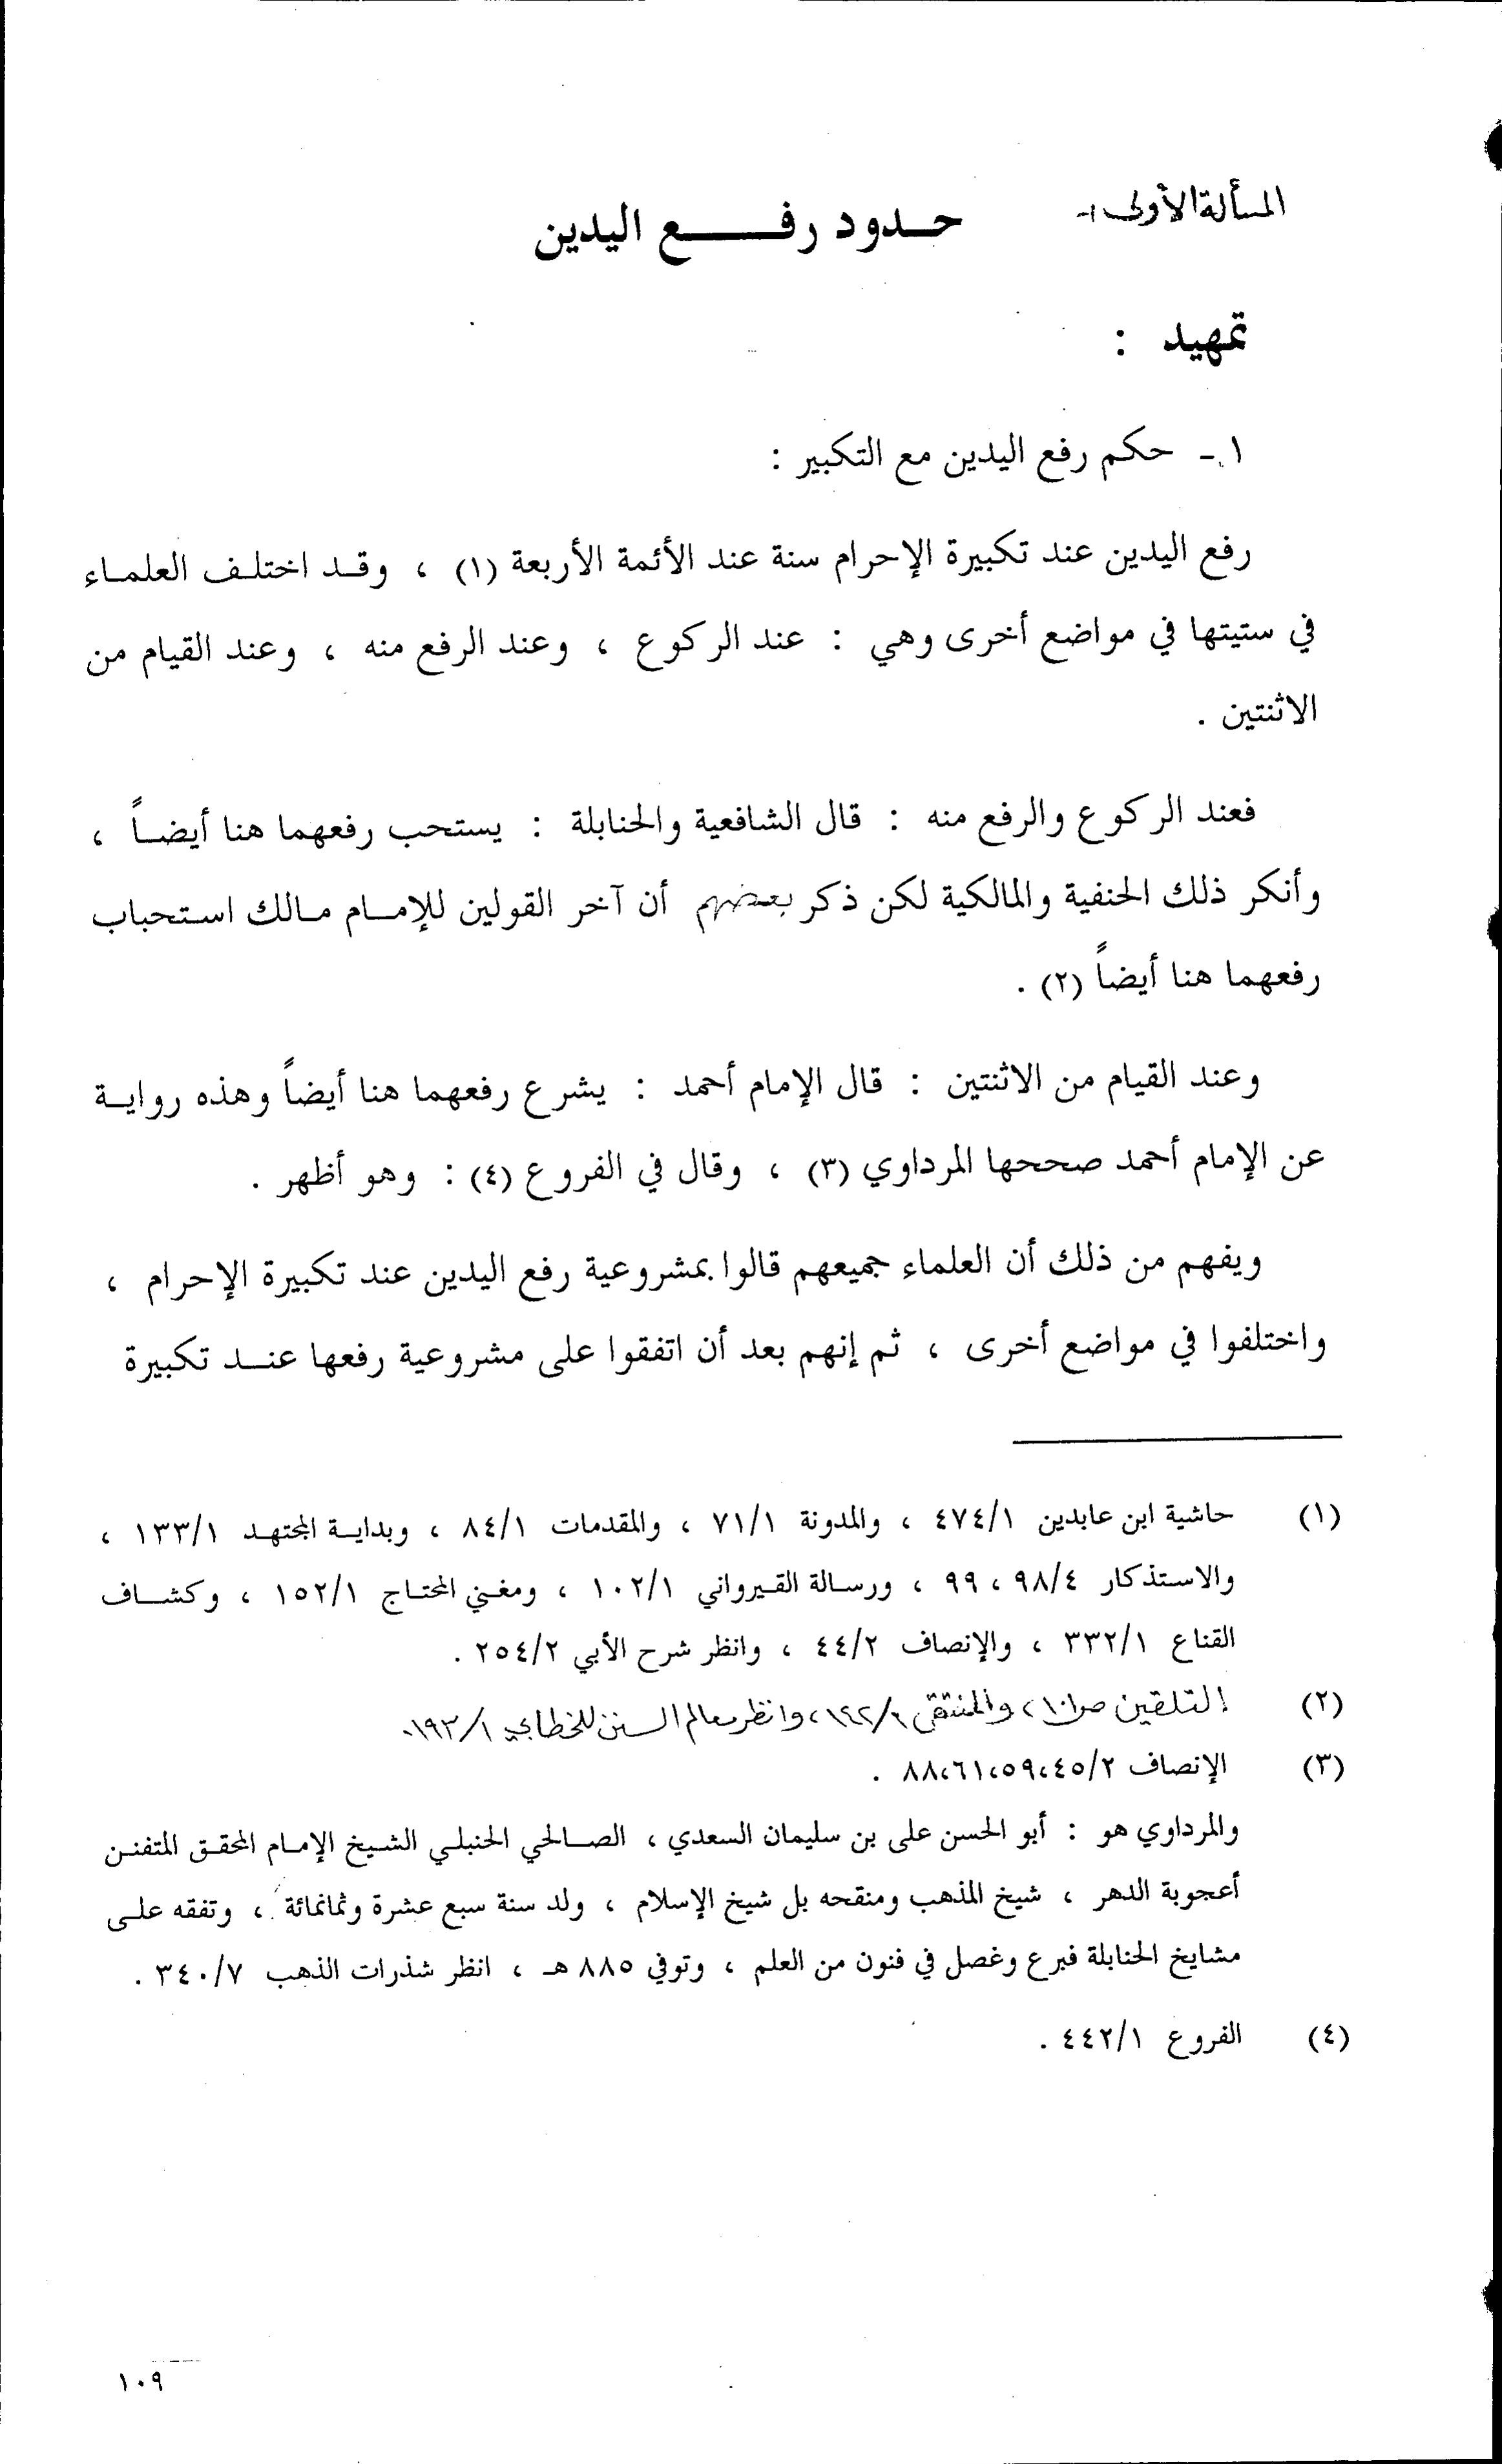 المسألة الأولى :-
حدود رفع اليدين
تمهيد :
١ - حكم رفع اليدين مع التكبير :
رفع اليدين عند تكبيرة الإحرام سنة عند الأئمة الأربعة (١) ، وقد اختلف العلماء
في ستيتها في مواضع أخرى وهي : عند الركوع ، وعند الرفع منه ، وعند القيام من
الاثنتين .
فعند الركوع والرفع منه : قال الشافعية والحنابلة : يستحب رفعهما هنا أيضاً ،
وأنكر ذلك الحنفية والمالكية لكن ذكر بعضهم أن آخر القولين للإمام مالك استحباب
رفعهما هنا أيضاً (٢) .
وعند القيام من الاثنتين : قال الإمام أحمد : يشرع رفعهما هنا أيضاً وهذه رواية
عن الإمام أحمد صححها المرداوي (٣) ، وقال في الفروع (٤) : وهو أظهر .
ويفهم من ذلك أن العلماء جميعهم قالوا بمشروعية رفع اليدين عند تكبيرة الإحرام ،
واختلفوا في مواضع أخرى ، ثم إنهم بعد أن اتفقوا على مشروعية رفعها عند تكبيرة
(١) حاشية ابن عابدين ٤٧٤/١ ، والمدونة ٧١/١ ، والمقدمات ٨٤/١ ، وبداية المجتهد ١٣٣/١ ،
والاستذكار ٩٨/٤ ، ٩٩ ، ورسالة القيرواني ١٠٢/١ ، ومغني المحتاج ١٥٢/١ ، وكشاف
القناع ٣٣٢/١ ، والإنصاف ٤٤/٢ ، وانظر شرح الأبي ٢٥٤/٢ .
(٢) التلقين ص١٠١ ، والمنتقى ، وانظر معالم السنن للخطابي ١٩٣/١ .
(٣) الإنصاف ٤٥/٢،٥٩،٦١،٨٨ .
والمرداوي هو : أبو الحسن على بن سليمان السعدي ، الصالحي الحنبلي الشيخ الإمام المحقق المتفنن
أعجوبة الدهر ، شيخ المذهب ومنقحه بل شيخ الإسلام ، ولد سنة سبع عشرة وثمانمائة ، وتفقه على
مشايخ الحنابلة فبرع وغصل في فنون من العلم ، وتوفي ٨٨٥ هـ ، انظر شذرات الذهب ٣٤٠/٧ .
(٤) الفروع ٤٤٢/١ .
١٠٩